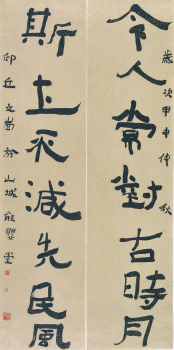 令人常對古時月
歲次甲申仲秋
斯土不減先民風
邱丘文當於山城